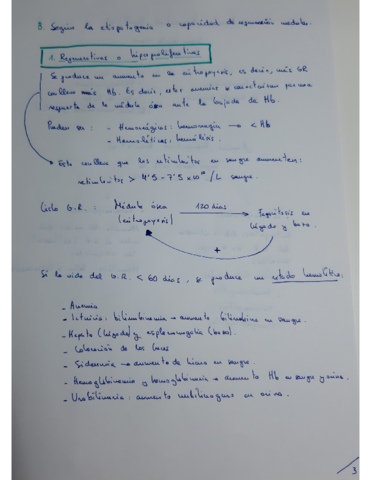 B. Según la etiopatogenia o capacidad de regeneración medular.
1. Regenerativas o hiperproliferativas
Se produce un aumento en la eritropoyesis, es decir, más GR
conllevan más Hb. Es decir, estas anemias se caracterizan por una
respuesta de la médula, ósea ante la bajada de Hb.
Pueden ser: - Hemorrágicas: hemorragia → < Hb
- Hemolíticas: hemólisis.
Esto conlleva que los reticulocitos en sangre aumenten:
reticulocitos > 4'5 - 7'5 x 10¹⁰ / L sangre.
Ciclo G.R.: Médula ósea 120 días
(eritropoyesis) en
hígado y bazo.
+
Si la vida del G.R. < 60 días, se produce un estado hemolítico.
- Anemia
- Ictericia: bilirrubinemia → aumento bilirrubina en sangre.
- Hepato (hígado) y esplenomegalia (bazo).
- Coloración de las heces
- Sideremia → aumento de hierro en sangre
- Hemoglobinemia y hemoglobinuria → aumento Hb en sangre y orina.
- Urobilinuria: aumento urobilinógeno en orina.
3